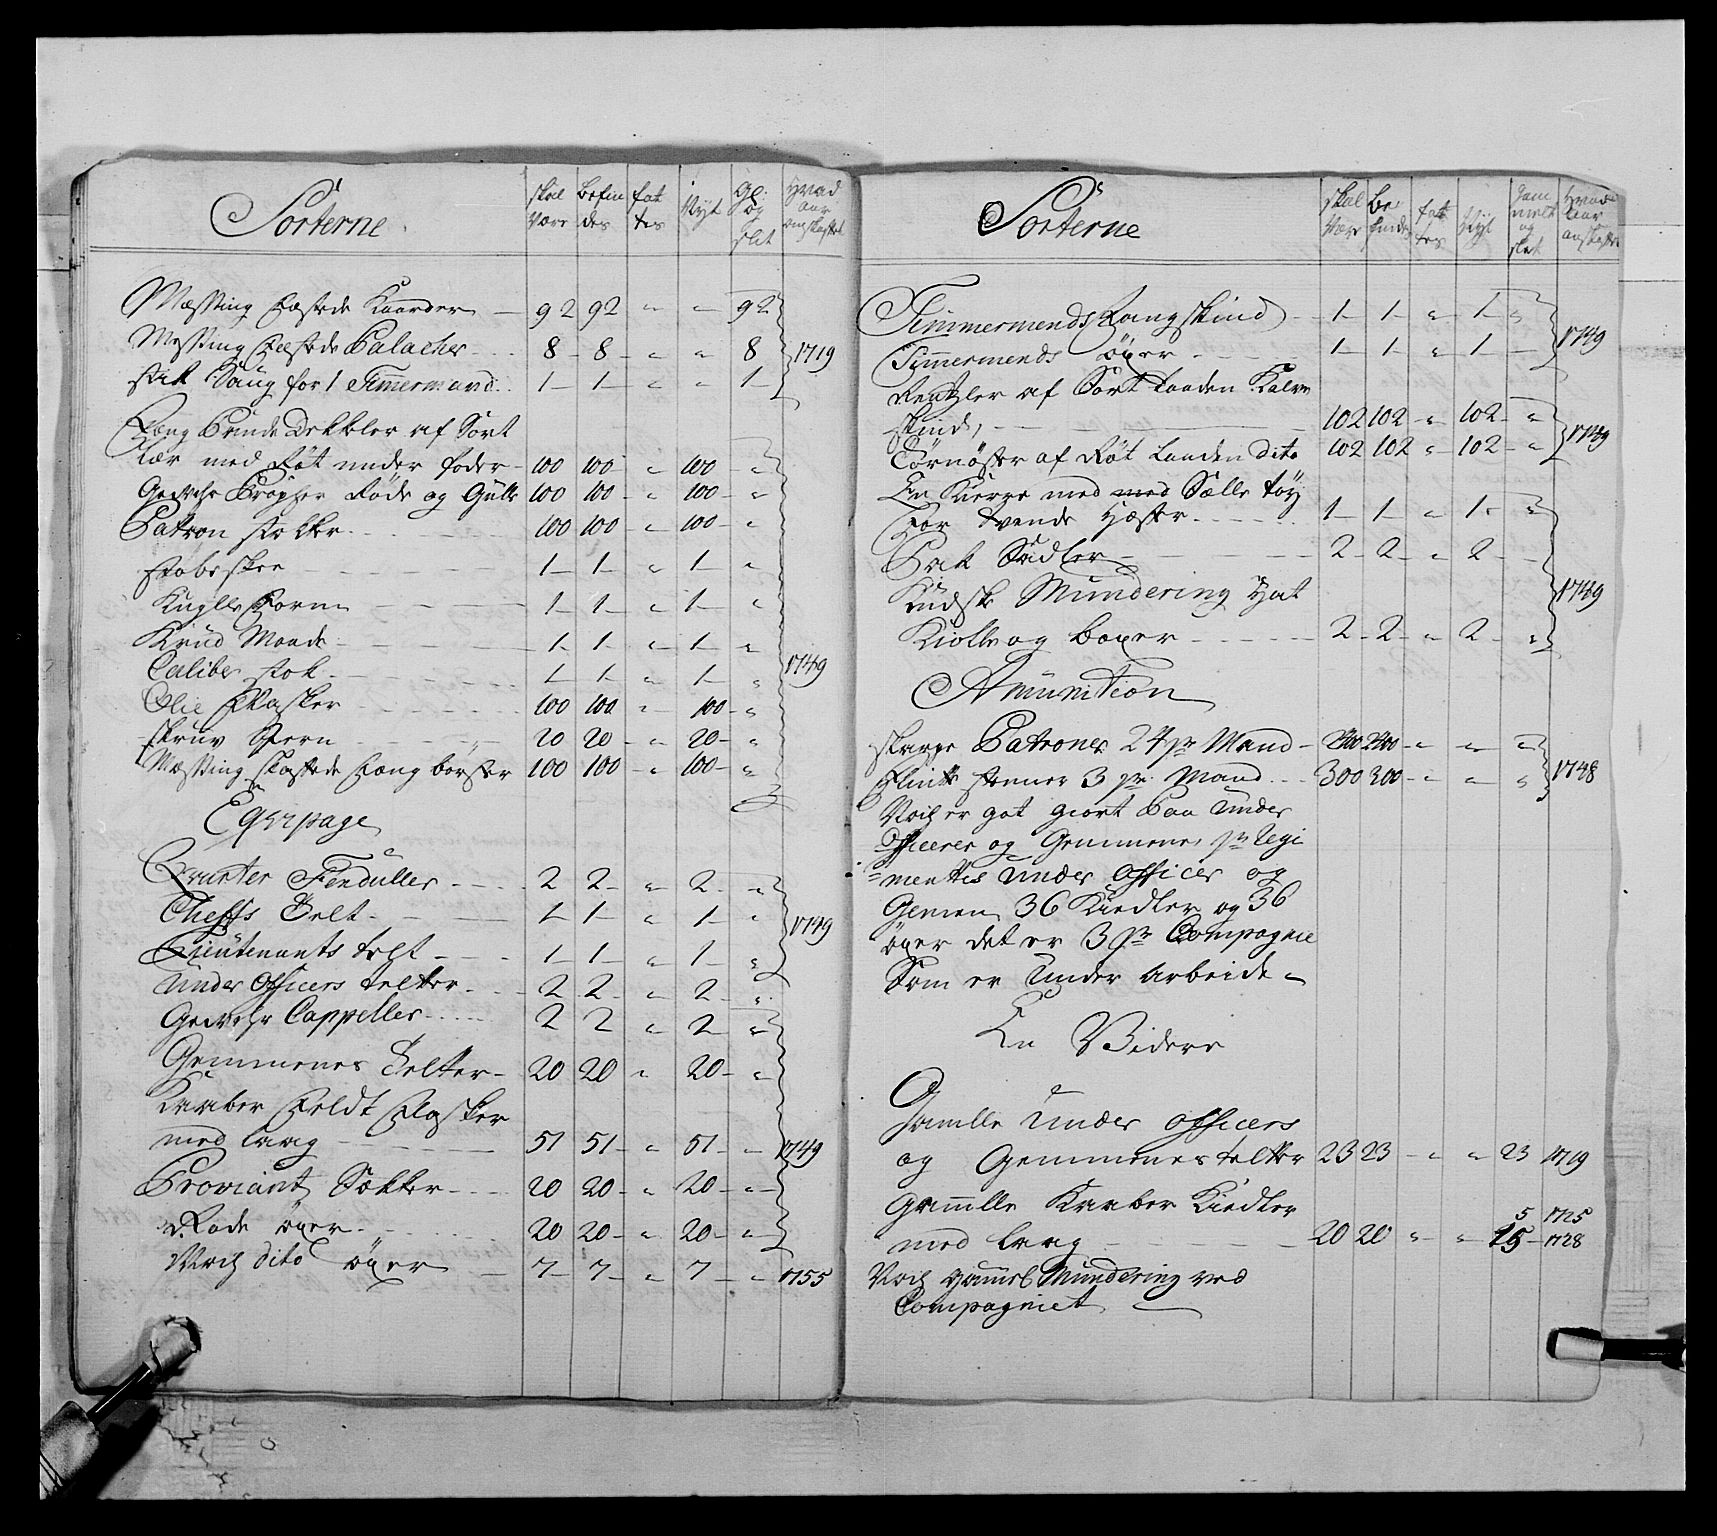 Sorterne
skal være
befindes
fattes
Nyt
Gl. og slet
Hvad aar anskaffet
Messing Fæstede Kaarder 92 92 " " 92
Messing Fæstede Palacher 8 8 " " 8 1719
stik Saug for 1 Timermand 1 1 " " 1
Fang Pinde Dekkler af Sort
Lær med Røt under foder 100 100 " 100 "
Gevehr Propper Røde og Gulle 100 100 " 100 "
Patron stokker 100 100 " 100 "
støbeskee 1 1 " 1 "
Kugle Form 1 1 " 1 "
Krud Maade 1 1 " 1 "
Caliber stok 1 1 " 1 " 1749
Olie Flasker 100 100 " 100 "
skruv 20 20 " 20 "
Messing skaftede Fang børster 100 100 " 100 "
Eqvipage
Qvarter 2 2 " 2 "
Cheffs Telt 1 1 " 1 " 1749
Lieutenants telt 1 1 " 1 "
Under Officers telter 2 2 " 2 "
Gevehr Cappeller 2 2 " 2 "
Gemeenes Telter 20 20 " 20 "
Kaaber Feldt Flasker
med laag 51 51 " 51 " 1749
Proviant Sekker 20 20 " 20 "
Rode øxer 20 20 " 20 "
Noch dito øxer 7 7 " 7 " 1755
Sorterne
skal være
befindes
fattes
Nyt
Gammelt og slet
Hvad aar anskaffet
Timmermends Fangskind 1 1 " 1 "
Timmermends øxer 1 1 " 1 1749
Rentzler af Sort Laaden Kalve
skind, 102 102 " 102 "
Tørnøster af Røt Laaden dito 102 102 " 102 " 1749
En Kierre med med Sælle tøy
For tvende Hæster 1 1 " 1 "
Pak Sadler 2 2 " 2
Kudsk Mundering Hat 1749
Kiolle og boxer 2 2 " 2 "
Amunition
skarpe Patroner 24 pr Mand 2400 2400 " " "
Flint steener 3 pr. Mand 300 300 " " " 1748
Noch er gat giort Paa Under
Officerer og Gemeene, pr Regi
mentes Under Officer og
Gemeen 36 Kiedler og 36
øxer det er 3 pr Compagnie
Som er Under arbeide
En Videre
Gamle Under Officers
og Gemeenes telter 23 23 " " 23 1719
Gamle Kaaber Kiedler 5 1725
med laag 20 20 " " 15 1728
Noch Mundering ved
Compagniet